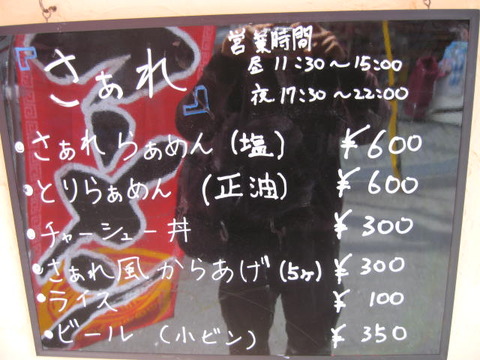 『さぁれ』
営業時間
昼 11:30～15:00
夜 17:30～22:00
・さぁれらぁめん(塩) ¥600
・とりらぁめん (正油) ¥600
・チャーシュー丼 ¥300
・さぁれ風からあげ(5ヶ) ¥300
・ライス ¥100
・ビール (小ビン) ¥350